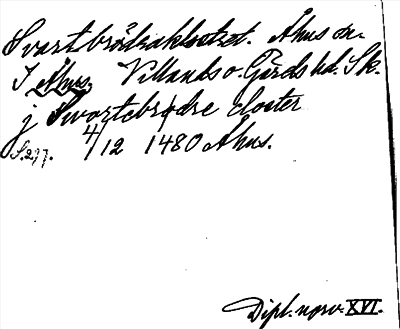 Svartbrödraklostret. Åhus sn.
I Åhus. Villands o. Gärds hd. Sk.
j Swortebrødre closter
S.277. 4/12 1480 Åhus.
Dipl. norv. XVI.